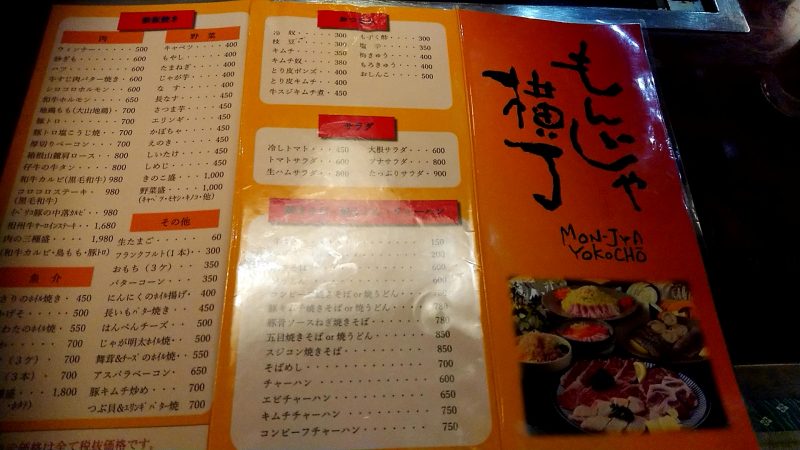 鉄板焼き
肉
ウィンナー・・・・・ 500
砂ぎも・・・・・・ 600
ハツ・・・・・・・ 600
牛すじ肉バター焼き・ 600
シロコロホルモン・・ 600
和牛ホルモン・・・・ 650
地鶏もも(大山地鶏)・ 700
豚トロ・・・・・・・ 700
豚トロ塩こうじ焼・・ 700
厚切りベーコン・・・ 700
箱根山麓肩ロース・・ 800
仔牛の牛タン・・・・ 800
和牛カルビ(黒毛和牛) 980
コロコロステーキ・ 980
(黒毛和牛)
イベリコ豚の中落カルビ・・ 980
相州牛サーロインステーキ・ 1,680
肉の三種盛・・・・ 1,980
(和牛カルビ・鳥もも・豚トロ)
魚介
さりのホイル焼・ 450
かげそ・・・・・ 500
わたのホイル焼・・ 550
・・・・・ 700
(3ケ)・ 700
(3本)・ 700
・・・ 1,800
野菜
キャベツ・・・・ 400
もやし・・・・・ 400
たまねぎ・・・・ 400
じゃが芋・・・・ 400
なす・・・・・・ 400
長なす・・・・・ 450
さつま芋・・・・ 450
エリンギ・・・・ 450
かぼちゃ・・・・ 450
えのき・・・・・ 450
しいたけ・・・・ 450
しめじ・・・・・ 450
きのこ盛・・・ 1,000
野菜盛・・・・ 1,000
(キャベツ・モヤシ・キノコ・他)
その他
生たまご・・・・・ 60
フランクフルト(1本)・・ 300
おもち(3ケ)・・ 350
バターコーン・・・ 350
にんにくのホイル揚げ・ 400
長いもバター焼き・・ 450
はんぺんチーズ・・ 500
じゃが明太ホイル焼・ 500
舞茸&チーズのホイル焼・ 550
アスパラベーコン・ 650
豚キムチ炒め・・・ 700
つぶ貝&エリンギバター焼 700
の価格は全て税抜価格です。
冷奴・・・・・・ 300
枝豆・・・・・・ 300
キムチ・・・・・ 350
キムチ奴・・・・ 380
とり皮ポンズ・・ 400
とり皮キムチ・・ 400
牛スジキムチ煮・ 450
もずく酢・・・・ 350
塩辛・・・・・・ 350
梅きゅう・・・・ 400
もろきゅう・・・ 400
おしんこ・・・・ 500
サラダ
冷しトマト・・・ 450
トマトサラダ・・ 600
生ハムサラダ・・ 800
大根サラダ・・・ 600
ツナサラダ・・・ 800
たっぷりサラダ・ 900
150
200
600
コンビーフ焼きそば or 焼うどん・ 780
豚キムチ焼きそば or 焼うどん・ 780
豚骨ソースねぎ焼きそば・・・ 780
五目焼きそば or 焼うどん・・ 850
スジコン焼きそば・・・・・・ 850
そばめし・・・・・・・・・・ 700
チャーハン・・・・・・・・・ 600
エビチャーハン・・・・・・・ 650
キムチチャーハン・・・・・・ 750
コンビーフチャーハン・・・・ 750
もんじゃ
横丁
MON-JYA
YOKOCHŌ